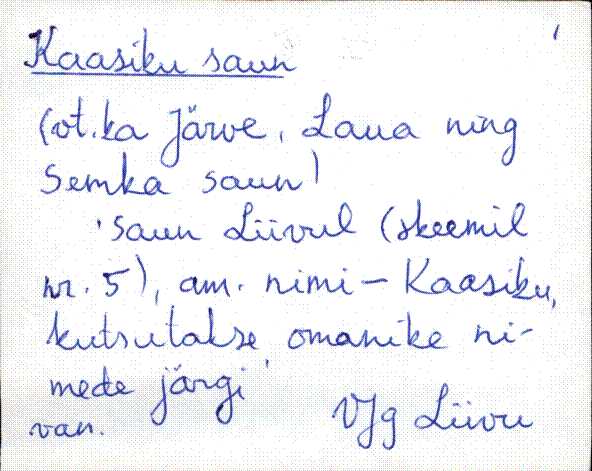 Kaasiku saun
(vt. ka Järve, Laua ning
Semka saun)
'saun Liivul (skeemil
nr. 5), am. nimi - Kaasiku,
kutsutakse omanike ni-
mede järgi'
van. VJg Liivu